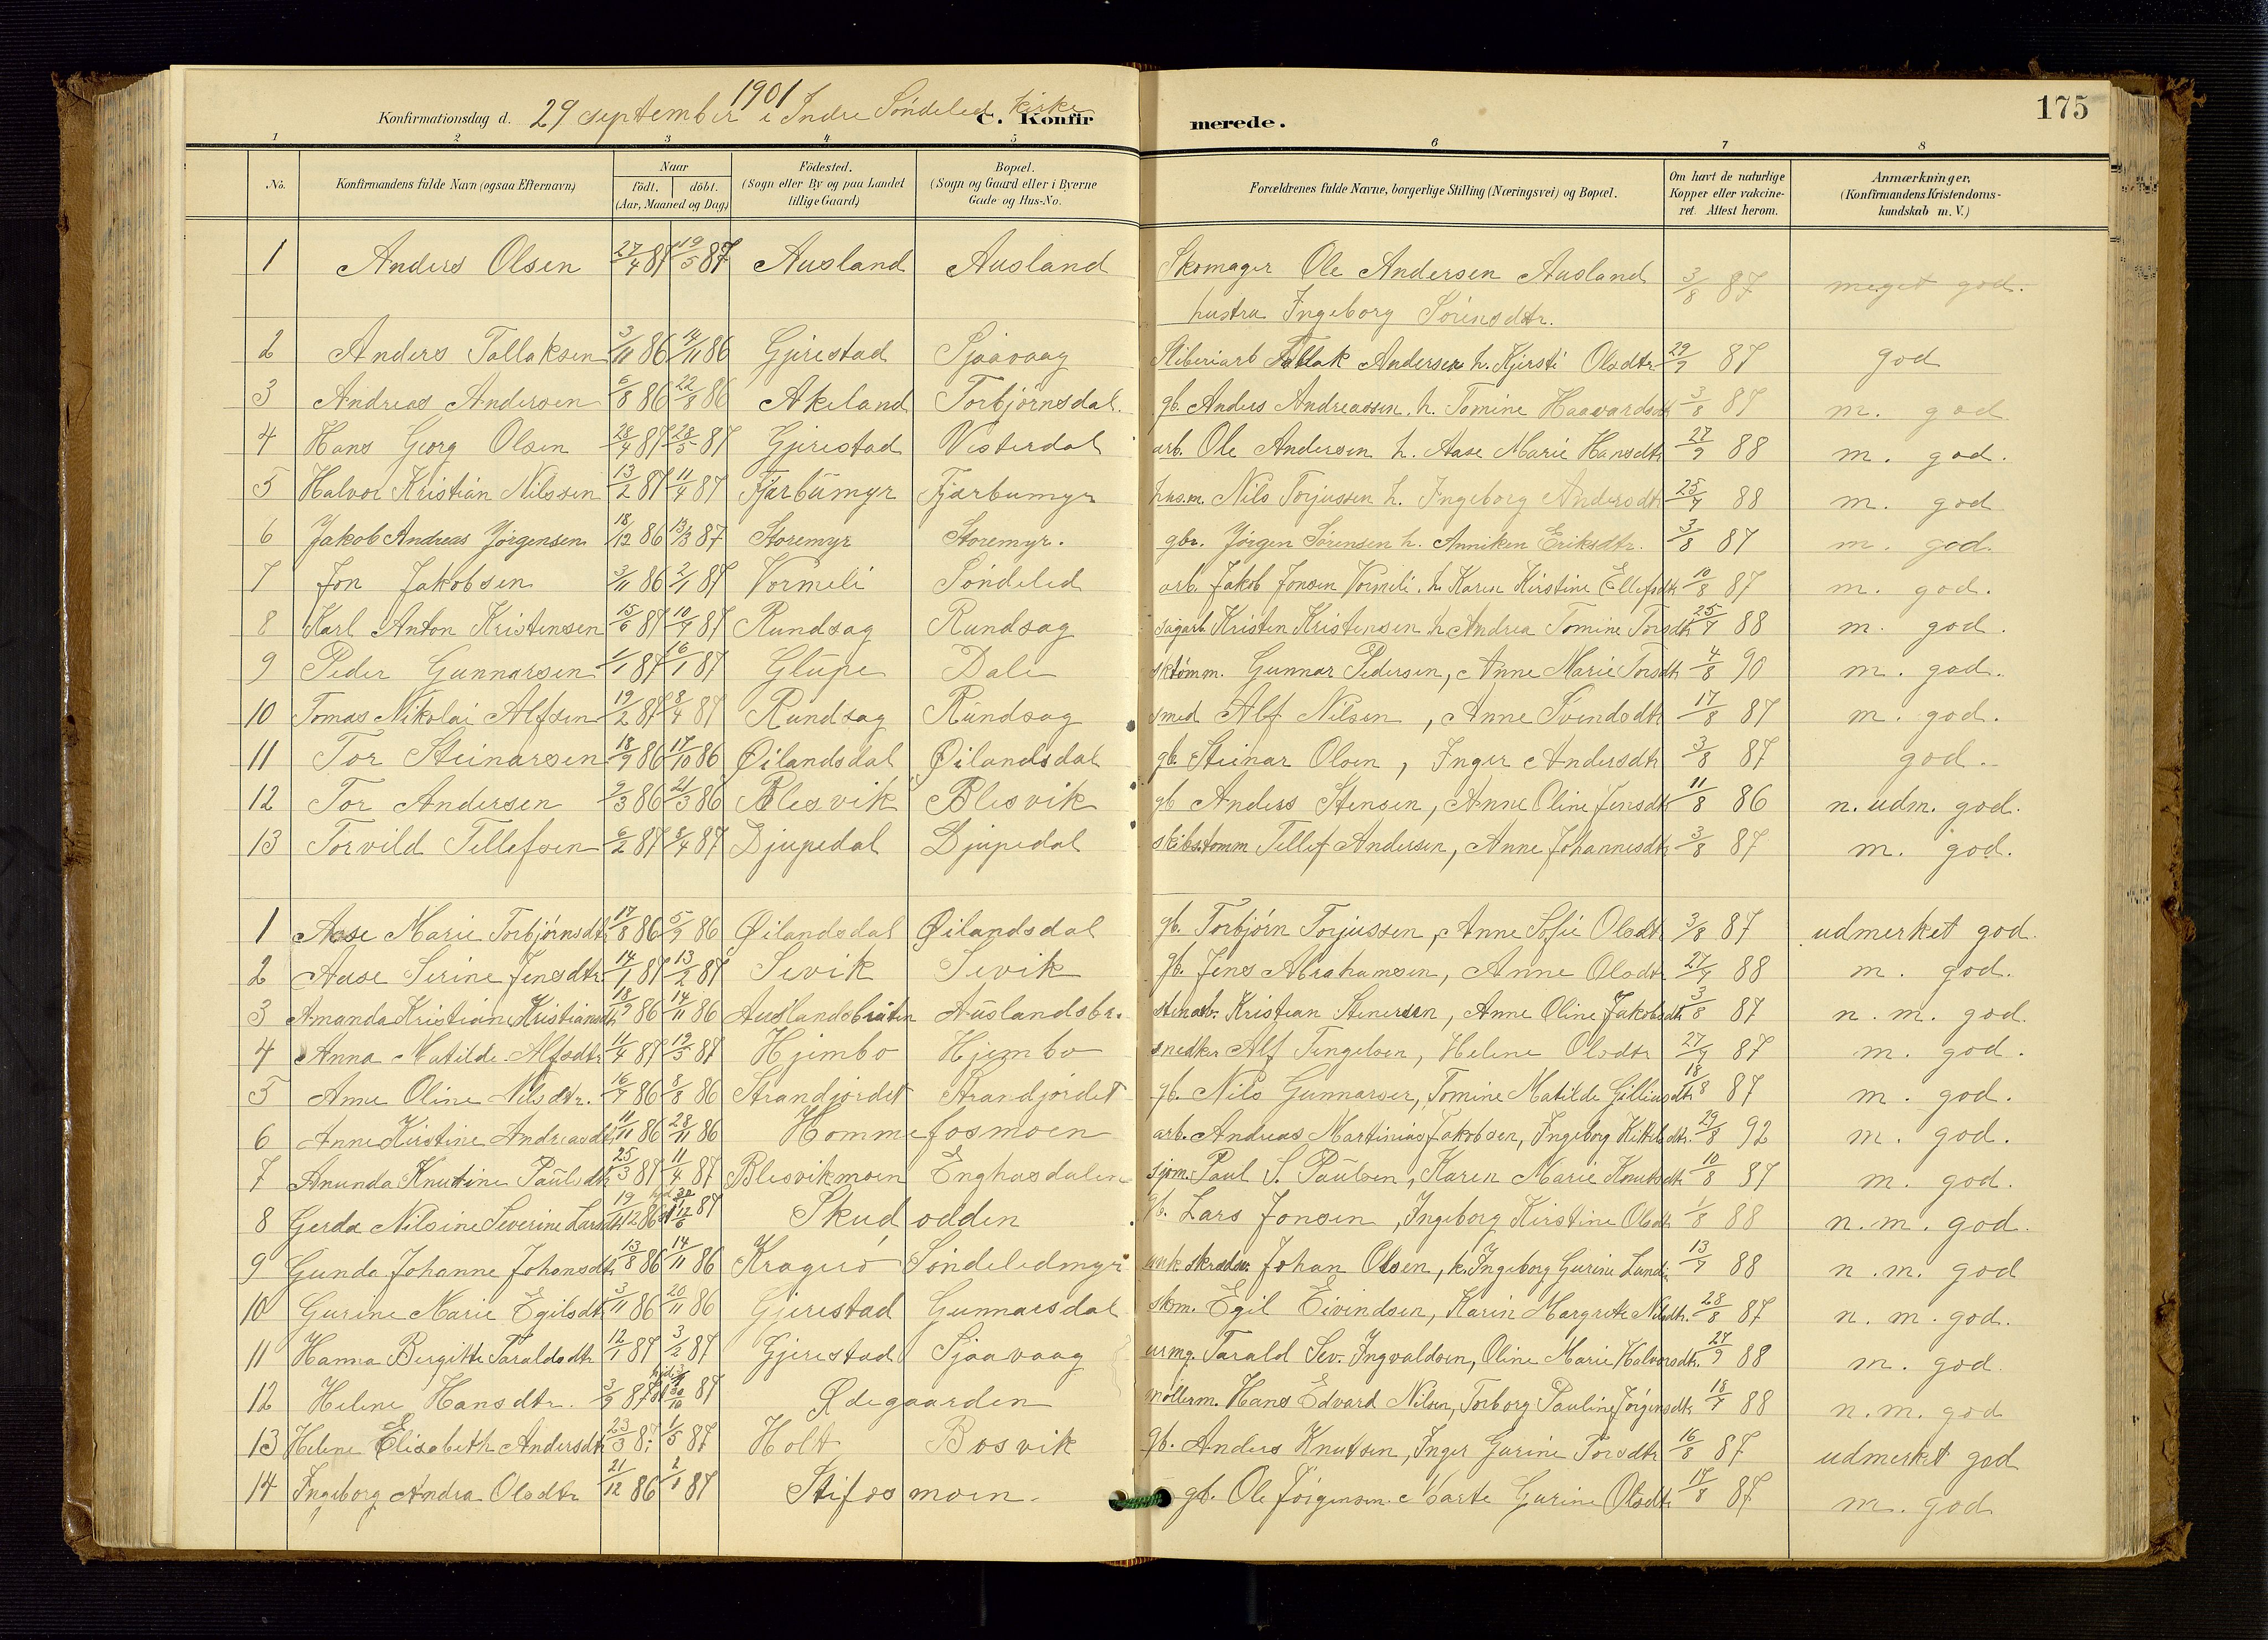 1901
Konfirmationsdag d. 29 september i Indre Söndeled kirke C. Konfir merede. 175
1 2 3 4 5 6 7 8
No. Konfirmandens fulde Navn (ogsaa Efternavn) Naar födt. döbt. (Aar, Maaned og Dag) Födested. (Sogn eller By og paa Landet tillige Gaard) Bopæl. (Sogn og Gaard eller i Byerne Gade og Hus-No. Forældrenes fulde Navne, borgerlige Stilling (Næringsvei) og Bopæl. Om havt de naturlige Kopper eller vakcine- ret. Attest herom. Anmærkninger, (Konfirmandens Kristendoms- kundskab m. V.)
1 Anders Olsen 27/4 87 19/5 87 Ausland Ausland Skomager Ole Andersen Ausland 3/8 87 meget god.
hustru Ingeborg Sörensdtr.
2 Anders Tallaksen 3/11 86 14/11 86 Gjerestad Sjaavaag Sliberiarb Tallak Andersen h. Kjersti Olsdtr 29/9 87 god
3 Andreas Andersen 6/8 86 22/8 86 Akeland Torbjörnsdal. gb. Anders Andreassen. h. Tomine Haavardsdtr 3/8 87 m. god
4 Hans Georg Olsen 28/4 87 28/5 87 Gjerestad Vesterdal arb. Ole Andersen h. Aase Marie Hansdtr 27/9 88 m. god.
5 Halvor Kristian Nilssen 13/2 87 11/4 87 Tjærbumyr Tjærbumyr husm. Nils Torjussen h. Ingeborg Andersdtr 25/7 88 m. god
6 Jakob Andreas Jörgensen 18/12 86 13/3 87 Storemyr Storemyr. gbr. Jörgen Sörensen h. Anniken Eriksdtr. 3/8 87 m. god.
7 Jon Jakobsen 3/11 86 2/1 87 Vormeli Söndeled arb. Jakob Jonsen Vormeli. h. Karen Kirstine Ellefsdtr 10/8 87 m. god.
8 Karl Anton Kristensen 15/6 87 10/7 87 Rundsag Rundsag sagarb. Kristen Kristensen h Andrea Tomine Torsdtr 25/7 88 m. god.
9 Peder Gunnarsen 1/1 87 16/1 87 Glupe Dale sktömm. Gunnar Pedersen, Anne Marie Torsdtr 4/8 90 m. god.
10 Tomas Nikolai Alfsen 19/2 87 8/4 87 Rundsag Rundsag smed Alf Nilsen, Anne Svendsdtr 17/8 87 m. god.
11 Tor Steinarsen 18/9 86 17/10 86 Øilandsdal Øilandsdal gb. Steinar Olsen, Inger Andersdtr 3/8 87 god.
12 Tor Andersen 9/3 86 21/3 86 Blesvik Blesvik gb Anders Stensen, Anne Oline Jensdtr 11/8 86 n. udm. god.
13 Torvild Tellefsen 6/2 87 8/4 87 Djupedal Djupedal skibstömm Tellef Andersen, Anne Johannesdtr 3/8 87 m. god.
1 Aase Marie Torbjörnsdtr 17/8 86 5/9 86 Øilandsdal Øilandsdal gb. Torbjörn Torjussen, Anne Sofie Olsdtr 3/8 87 udmerket god.
2 Aase Serine Jensdtr 14/1 87 13/2 87 Sevik Sevik gb. Jens Abrahamsen, Anne Olsdtr 27/9 88 m. god.
3 Amanda Kristiane Kristiansdtr 18/9 86 14/11 86 Auslandsbråten Auslandsbr. stenarb. Kristian Stenersen, Anne Oline Jakobsdtr 3/8 87 n. m. god.
4 Anna Matilde Alfsdtr 11/4 87 19/5 87 Hjembo Hjembo snedker Alf Tengelsen, Helene Olsdtr 27/9 87 m. god.
5 Anne Oline Nilsdtr. 16/7 86 8/8 86 Strandjordet Strandjordet gb. Nils Gunnarsen, Tomine Matilde Gilliusdtr 18/8 87 m. god.
6 Anne Kirstine Andreasdtr 11/11 86 28/11 86 Hommefosmoen arb. Andreas Martinius Jakobsen, Ingeborg Kittilsdtr. 29/8 92 m. god.
7 Anunda Knutine Paulsdtr 25/3 87 11/4 87 Blesvikmoen Enghasdalen sjöm. Paul S. Paulsen, Karen Marie Knutsdtr 10/8 87 m. god.
8 Gerda Nilsine Severine Larsdtr 19/12 86 12/6 87 Skudodden gb. Lars Jonsen, Ingeborg Kirstine Olsdtr 1/8 88 n. m. god.
9 Gunda Johanne Johansdtr 13/8 86 14/11 86 Kragerö Söndeledmyr skrædder Johan Olsen, k. Ingeborg Gurine Lunde 13/7 88 n. m. god
10 Gurine Marie Egilsdtr 3/11 86 20/11 86 Gjerestad Gunnarsdal skom. Egil Eivindsen, Karen Margrete Nilsdtr. 28/8 87 n. m. god.
11 Hanna Birgitte Taraldsdtr 12/1 87 3/2 87 Gjerestad Sjaavaag urmg. Tarald Sev. Ingvaldsen, Oline Marie Halvorsdtr. 27/9 88 m. god
12 Helene Hansdtr. 3/9 87 30/10 87 Ødegaarden möllerm. Hans Edvard Nilsen, Torborg Pauline Jörgensdtr 18/7 88 n. m. god
13 Helene Elisabeth Andersdtr 23/3 87 1/5 87 Holt Bosvik gb. Anders Knutsen, Inger Gurine Torsdtr 16/8 87 udmerket god
14 Ingeborg Andrea Olsdtr 21/12 86 2/1 87 Stifosmoen. gb. Ole Jörgensen. Marte Gurine Olsdtr 17/8 87 m. god